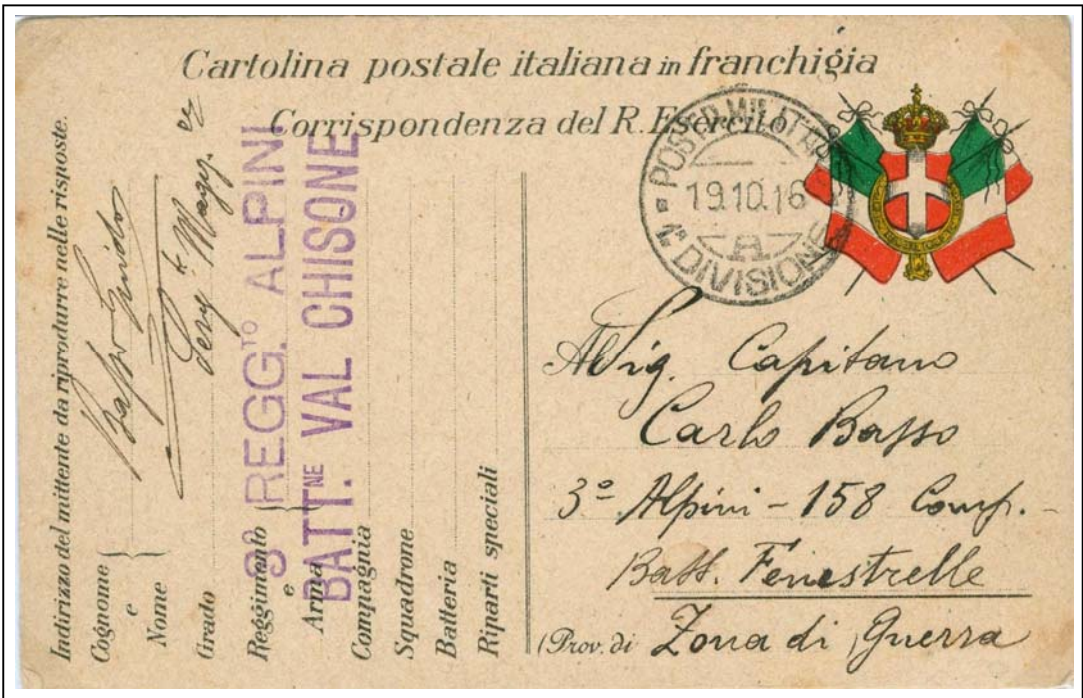 Cartolina postale italiana in franchigia
Corrispondenza del R. Esercito
POSTA MILITARE
19.10.16
A
1ª DIVISIONE
Indirizzo del mittente da riprodurre nelle risposte.
Cognome
e
Nome
Basso Guido
Grado
Serg.t Magg.
Reggimento
e
Arma
3º REGG.TO ALPINI
BATT.NE VAL CHISONE
Compagnia
Squadrone
Batteria
Riparti speciali
Al Sig. Capitano
Carlo Basso
3º Alpini - 158 Comp. -
Batt. Fenestrelle
(Prov. di Zona di Guerra